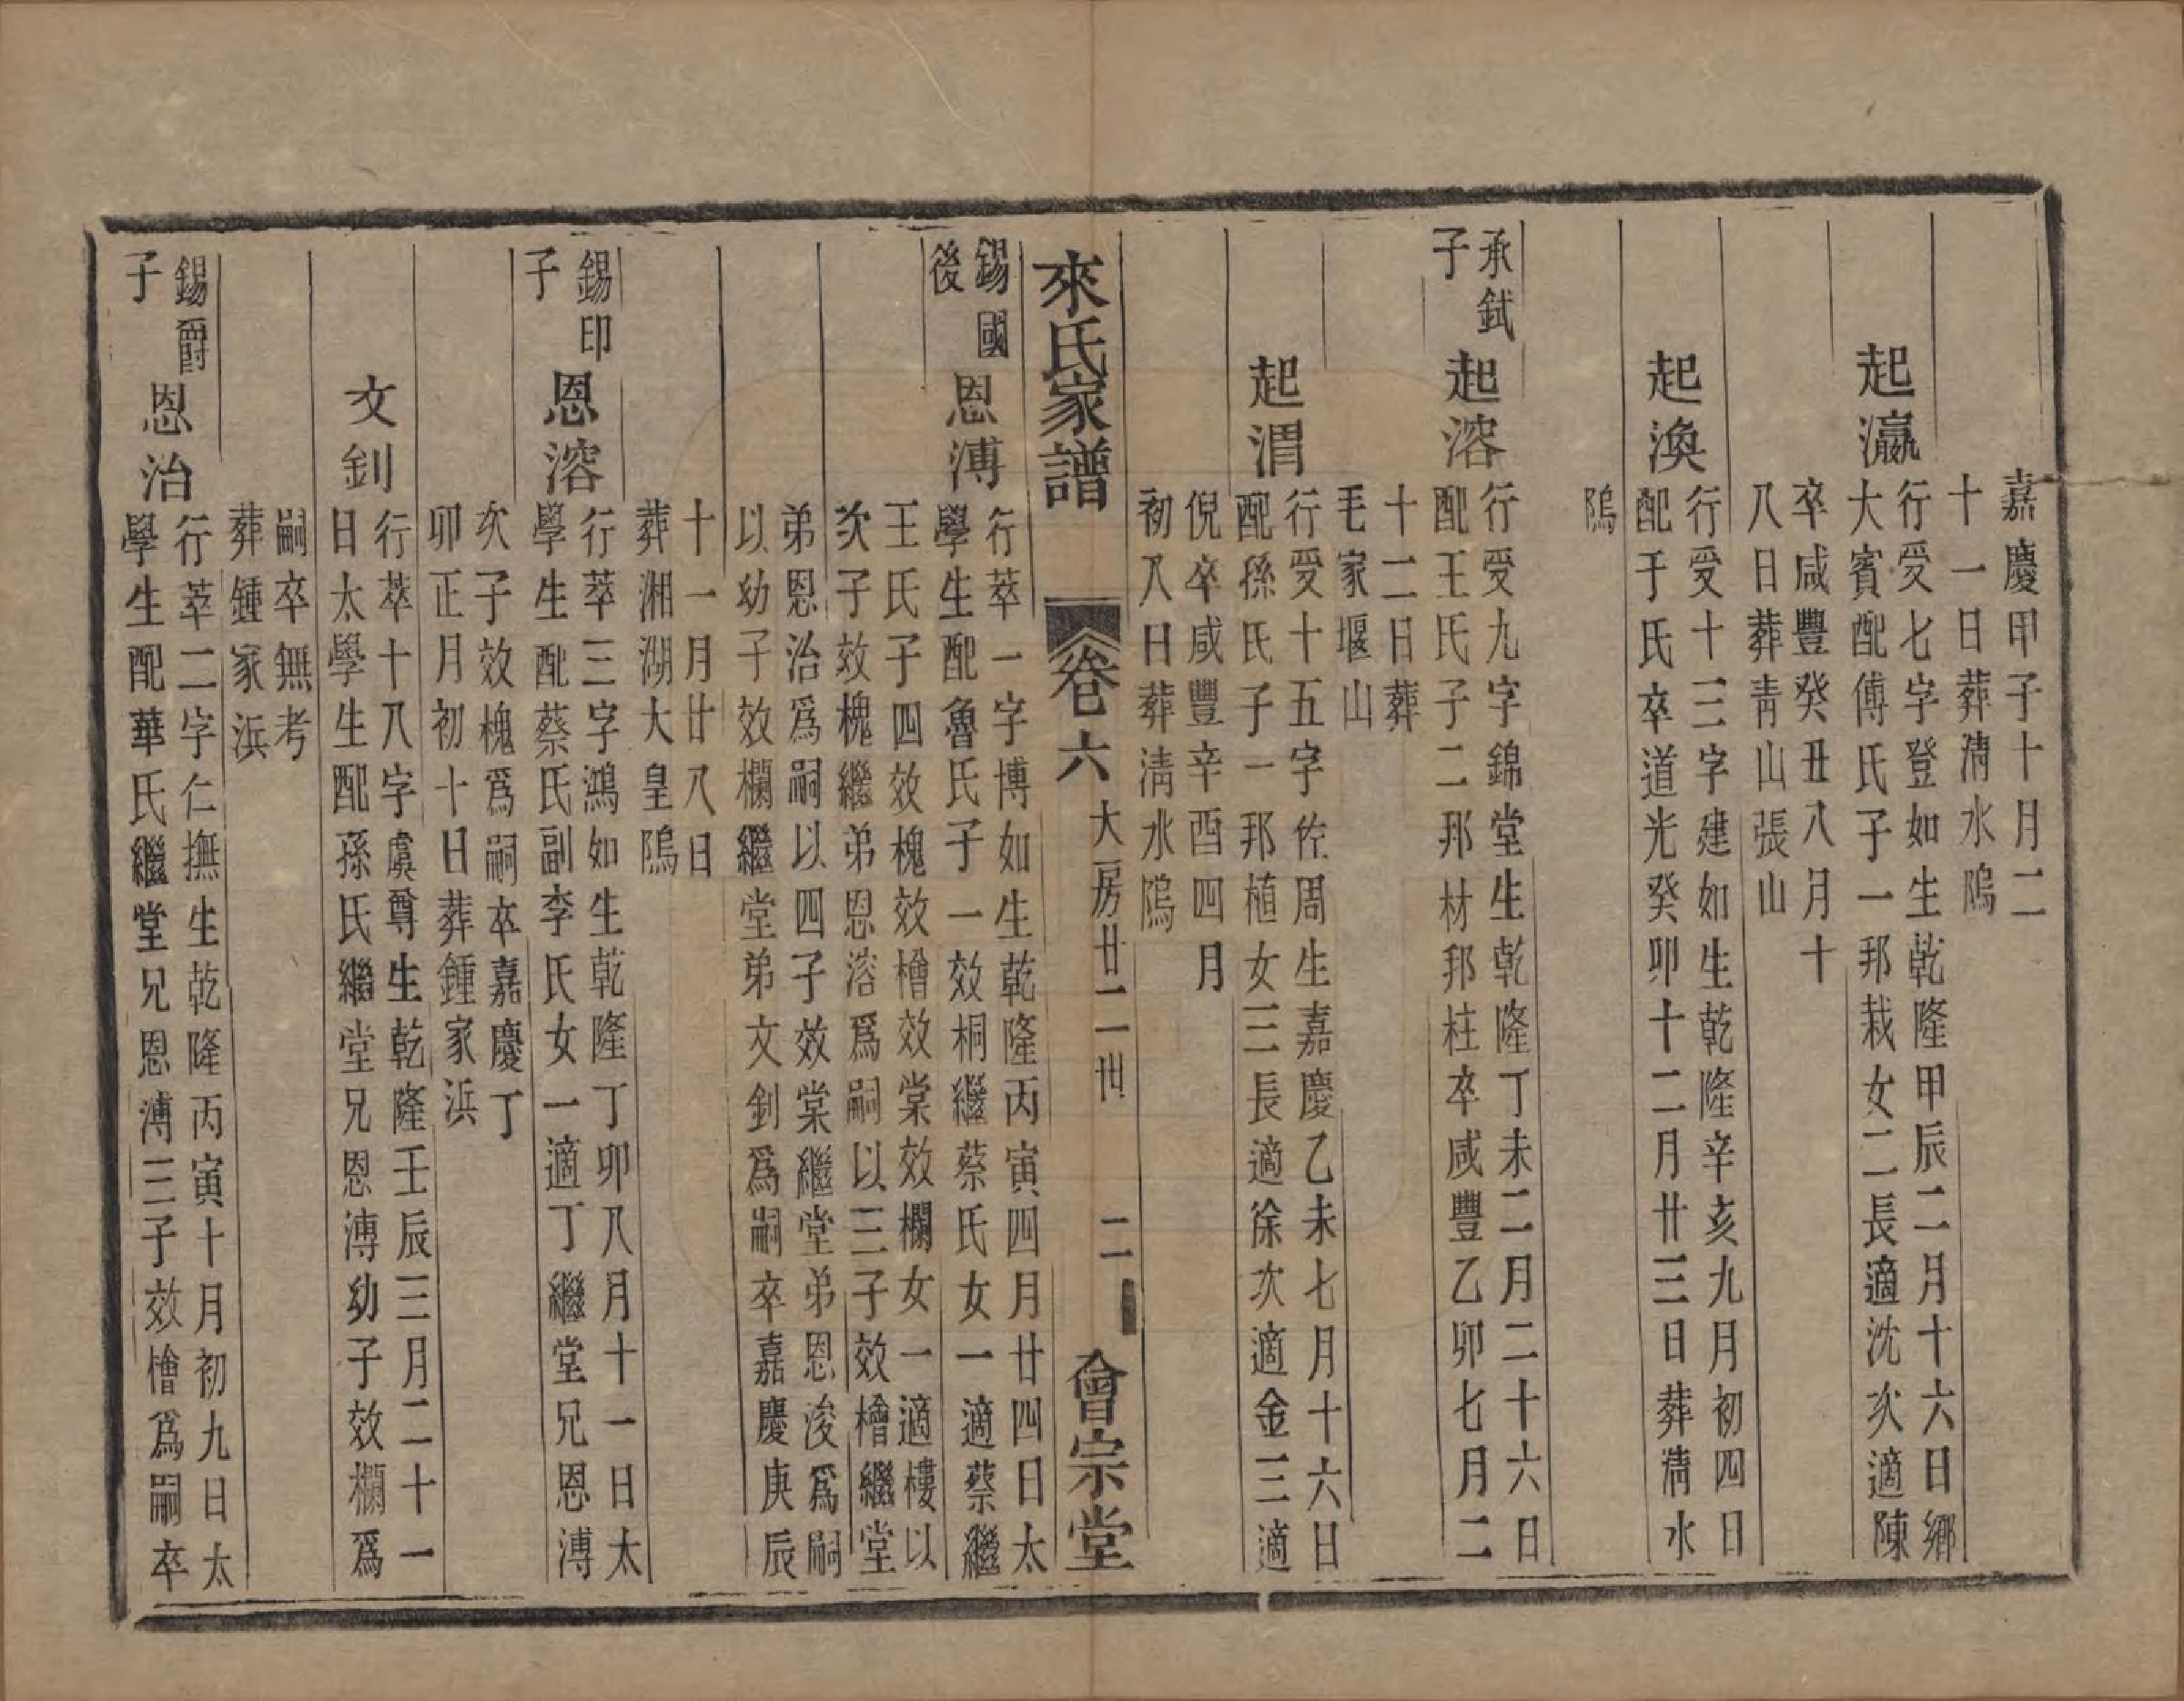 嘉慶甲子十月二
十一日葬清水隖
起瀛
行受七字登如生乾隆甲辰二月十六日鄉
大賓配傅氏子一邦栽女二長適沈次適陳
卒咸豐癸丑八月十
八日葬青山張山
起渙
行受十三字建如生乾隆辛亥九月初四日
配于氏卒道光癸卯十二月廿三日葬清水
隖
承鉽
子
起溶
行受九字錦堂生乾隆丁未二月二十六日
配王氏子二邦材邦柱卒咸豐乙卯七月二
十二日葬
毛家堰山
起渭
行受十五字佐周生嘉慶乙未七月十六日
配孫氏子一邦植女三長適徐次適金三適
倪卒咸豐辛酉四月
初八日葬清水隖
來氏家譜 卷六 大房廿二世 二 會宗堂
錫國
後
恩溥
行萃一字博如生乾隆丙寅四月廿四日太
學生配魯氏子一效桐繼蔡氏女一適蔡繼
王氏子四效槐效檜效棠效欄女一適樓以
次子效槐繼弟恩溶爲嗣以三子效檜繼堂
弟恩治爲嗣以四子效棠繼堂弟恩浚爲嗣
以幼子效欄繼堂弟文釗爲嗣卒嘉慶庚辰
十一月廿八日
葬湘湖大皇隖
錫印
子
恩溶
行萃三字鴻如生乾隆丁卯八月十一日太
學生配蔡氏副李氏女一適丁繼堂兄恩溥
次子效槐爲嗣卒嘉慶丁
卯正月初十日葬鍾家浜
文釗
行萃十八字虞尊生乾隆壬辰三月二十一
日太學生配孫氏繼堂兄恩溥幼子效欄爲
嗣卒無考
葬鍾家浜
錫爵
子
恩治
行萃二字仁撫生乾隆丙寅十月初九日太
學生配華氏繼堂兄恩溥三子效檜爲嗣卒